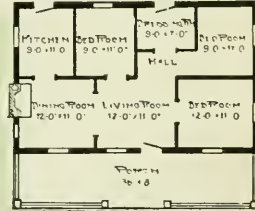 KITCHEN
9-0 × 11-0
BEDROOM
9-0 × 11-0
9-0 × 7-0
BEDROOM
HALL
DINING ROOM
12-0 × 11-0
LIVING ROOM
12-0 × 11-0
BEDROOM
12-0 × 11-0
PORCH
36 × 8